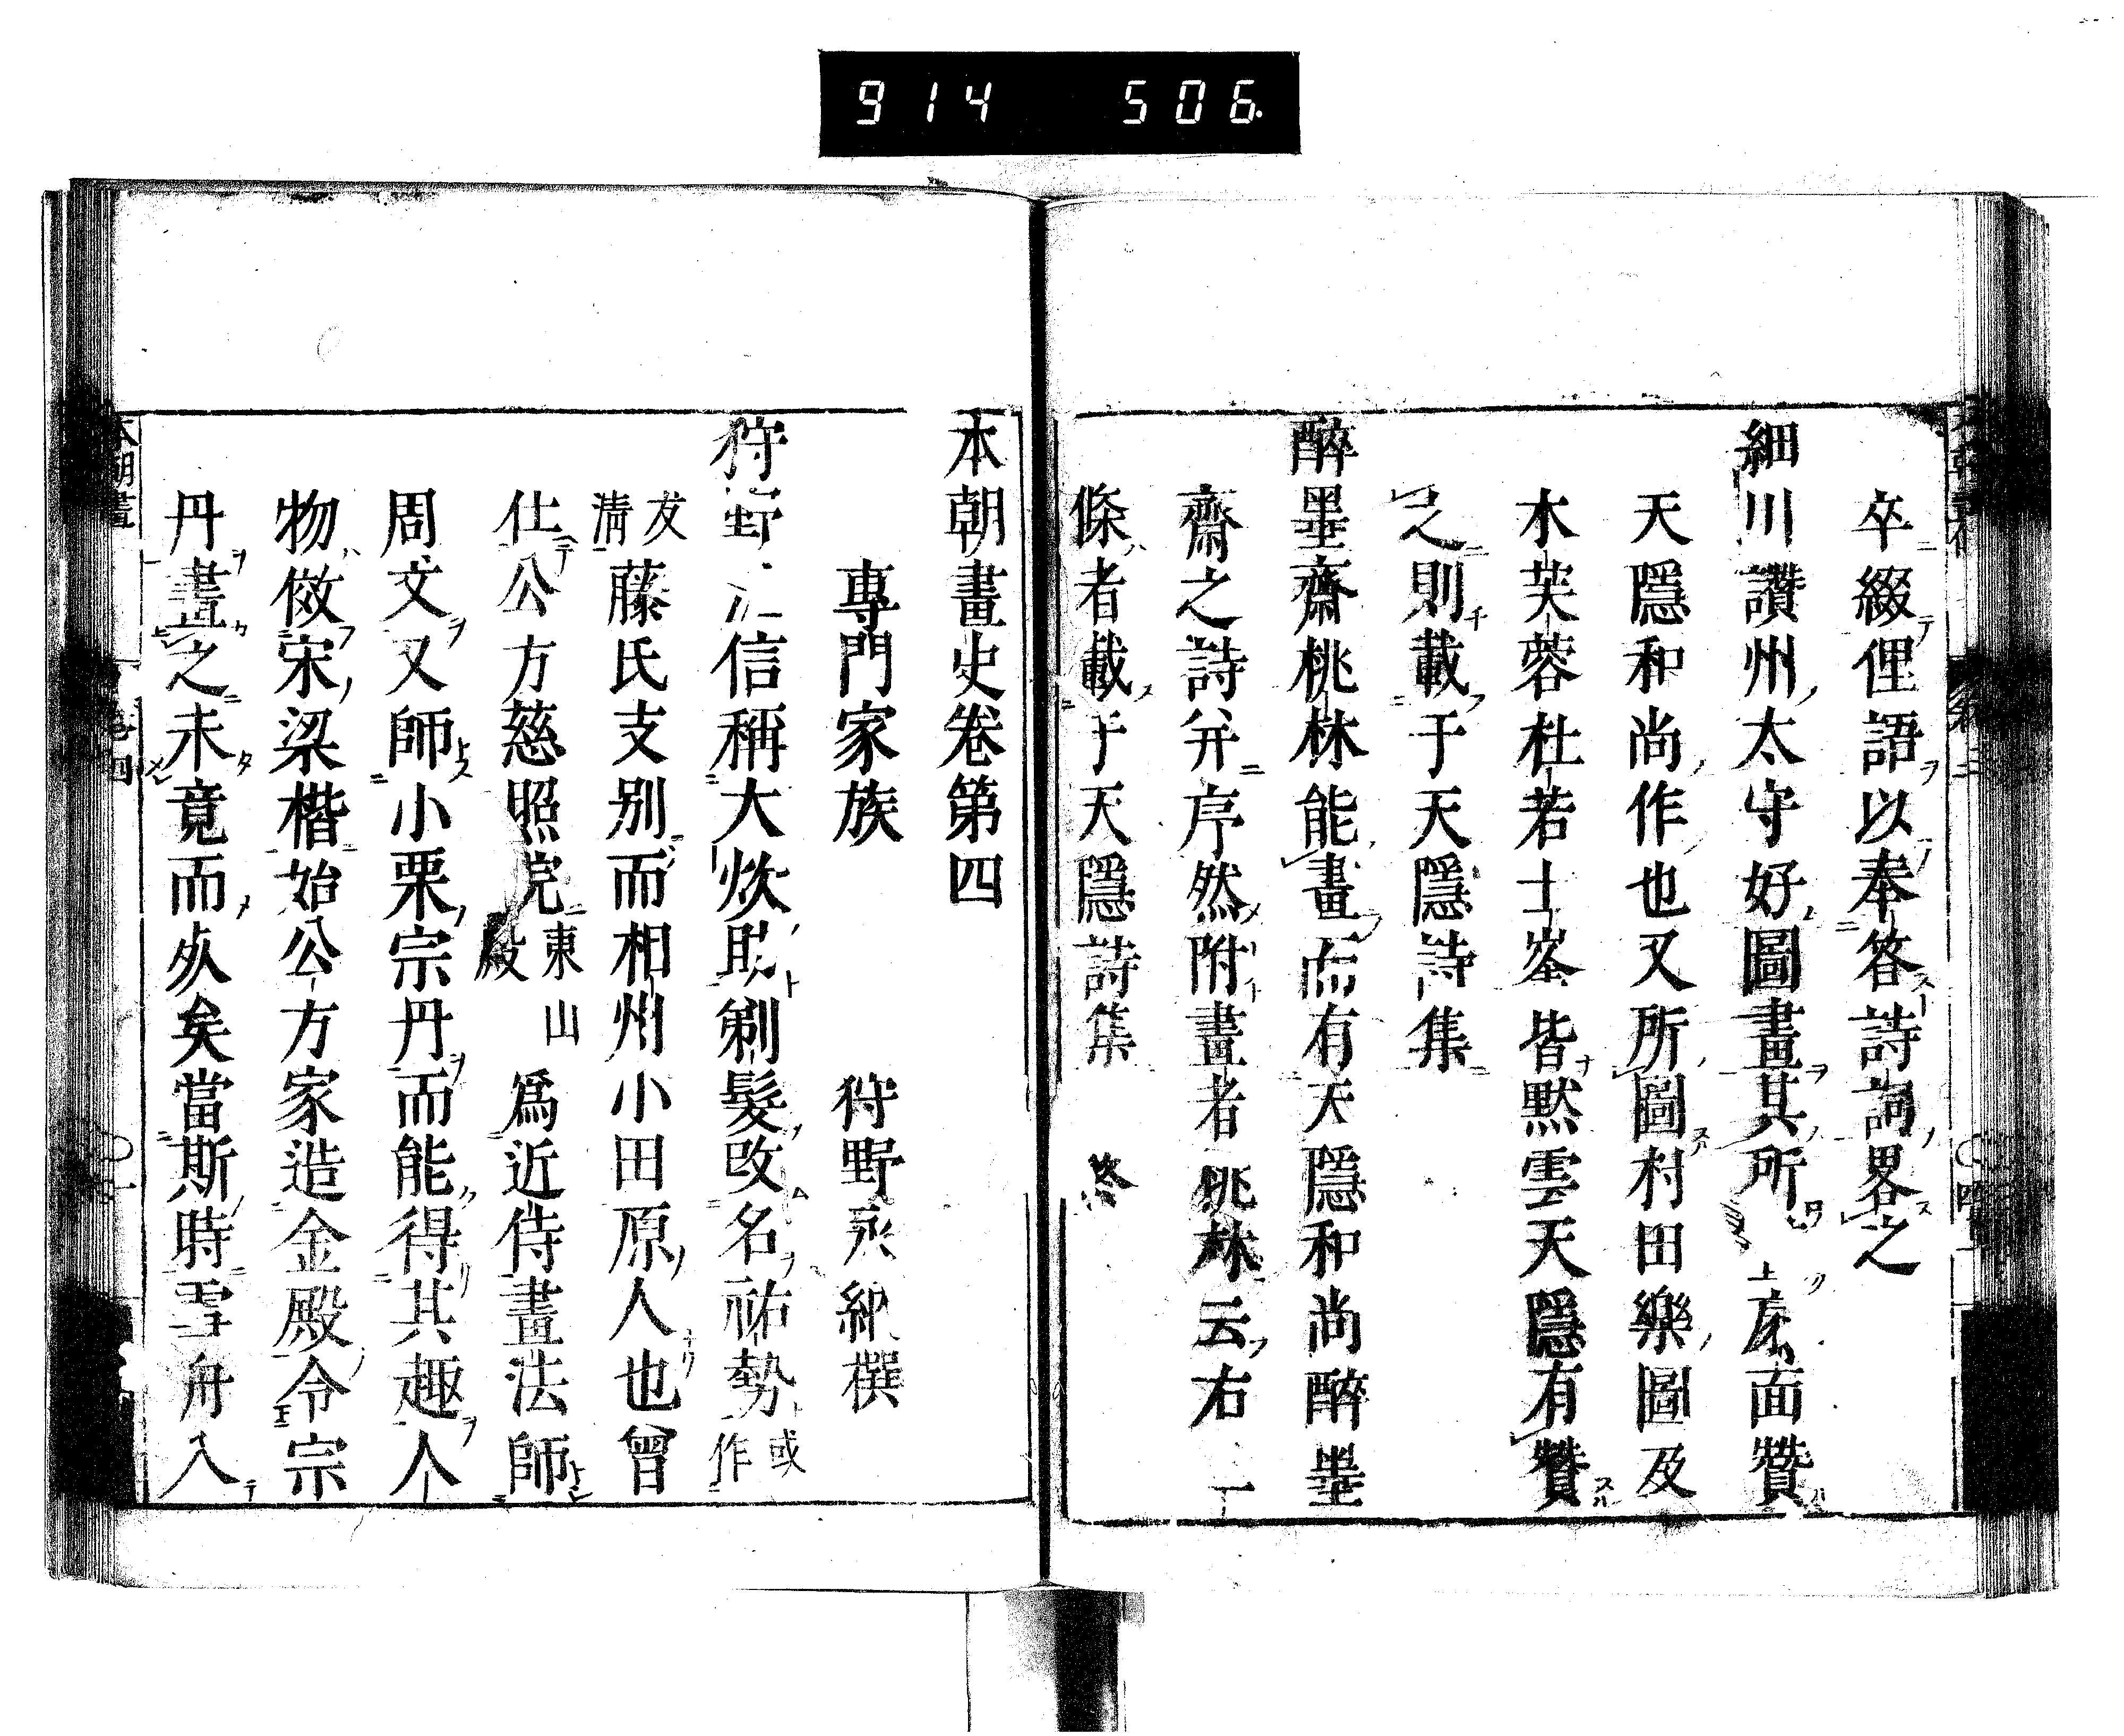 914 506.
卒綴俚語以奉答詩詞畧之
細川讚州太守好圖畫其所面贊
天隱和尚作也又所圖村田樂圖及
木芙蓉杜若士峯皆默雲天隱有贊
之則載于天隱詩集
醉墨齋桃林能畫而有天隱和尚醉墨
齋之詩并序然附畫者桃林云右一
條者載于天隱詩集 終
本朝畫史卷第四
專門家族 狩野永納撰
狩野信稱大炊助剃髮改名祐勢或作
友清藤氏支别而相州小田原人也曾
仕公方慈照院東山殿爲近侍畫法師
周文又師小栗宗丹而能得其趣人
物倣宋梁楷始公方家造金殿令宗
丹畫之未竟而矣當斯時雪舟入